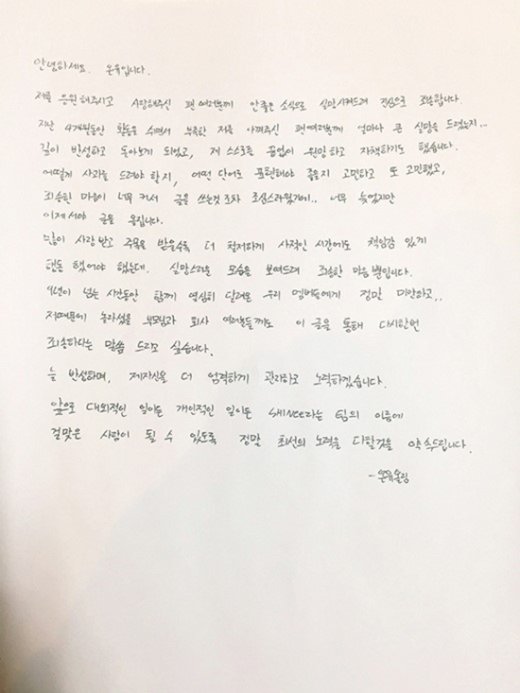 안녕하세요. 온유입니다.
저를 응원해주시고 사랑해주신 팬 여러분께 안좋은 소식으로 실망시켜드려 진심으로 죄송합니다
지난 4개월동안 활동을 쉬면서 부족한 저를 아껴주신 팬 여러분께 얼마나 큰 실망을 드렸는지...
깊이 반성하고 돌아보게 되었고, 제 스스로를 끝없이 원망하고 자책하기도 했습니다.
어떻게 사과를 드려야 할지, 어떤 단어로 표현해야 좋을지 고민하고 또 고민했고,
죄송한 마음이 너무 커서 글을 쓰는것 조차 조심스러웠기에.. 너무 늦었지만
이제서야 글을 올립니다.
많이 사랑 받고 주목을 받을수록 더 철저하게 사적인 시간에도 책임감 있게
행동 했어야 했는데. 실망스러운 모습을 보여드려 죄송한 마음 뿐입니다.
9년이 넘는 시간동안 함께 열심히 달려온 우리 멤버들에게 정말 미안하고..
저때문에 놀라셨을 부모님과 회사 여러분들께도 이 글을 통해 다시한번
죄송하다는 말씀 드리고 싶습니다.
늘 반성하며, 제자신을 더 엄격하게 관리하고 노력하겠습니다.
앞으로 대외적인 일이든 개인적인 일이든 SHINee라는 팀의 이름에
걸맞은 사람이 될 수 있도록 정말 최선의 노력을 다할것을 약속드립니다.
-온유올림